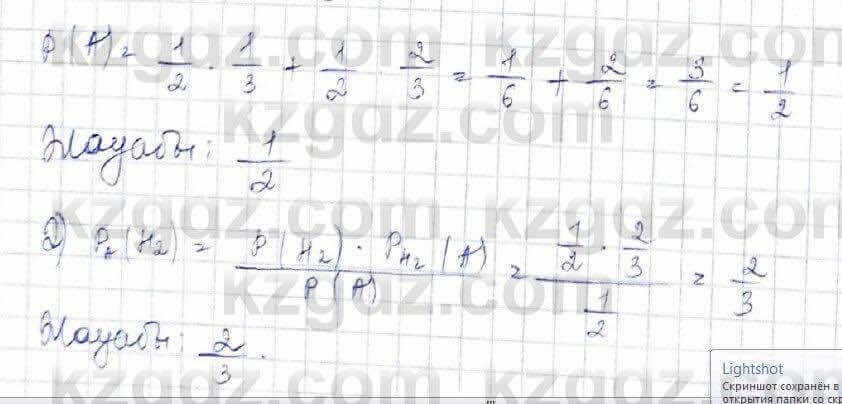 P(A) = 1/2 · 1/3 + 1/2 · 2/3 = 1/6 + 2/6 = 3/6 = 1/2
Жауабы: 1/2
2) P_A(H_2) = P(H_2) · P_{H_2}(A) / P(A) = (1/2 · 2/3) / (1/2) = 2/3
Жауабы: 2/3.
kzgdz.com kzgdz.com
kzgdz.com
kzgdz.com kzgdz.com
kzgdz.com
kzgdz.com
Lightshot
Скриншот сохранён в
открытия папки со скр